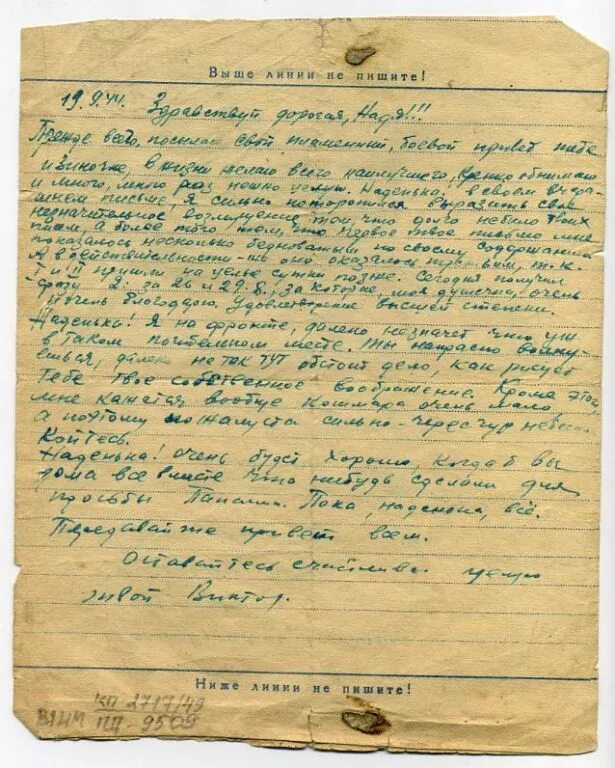 Выше линии не пишите!
19.9.44. Здравствуй дорогая, Надя!!!
Прежде всего, посылаю свой пламенный, боевой привет тебе
и Зиночке, в жизни желаю всего наилучшего, крепко обнимаю
и много, много раз нежно целую. Наденька! в своем вчера-
шнем письме, я сильно поторопился выразить свое
незначительное возмущение тем, что долго небыло твоих
писем, а более того тем, что первое твое письмо мне
показалось несколько бедноватым по своему содержанию
А в действительности-то оно оказалось первым, т.к.
I и II пришли на целые сутки позже. Сегодня получил
сразу 2. за 26 и 29.8. за которые, моя душечка, очень
и очень благодарю. Удовлетворение высшей степени.
Наденька! Я на фронте, далеко незначет что уж
в таком почтительном месте. Ты напрасно волну-
ешься, далеко не так тут обстоит дело, как рисует
тебе твое собственное воображение. Кроме этого,
мне кажется вообще кошмара очень мало,
а поэтому пожалуста сильно-чересчур небес-
койтесь.
Наденька! очень будет хорошо, когда б вы
дома все вместе что нибудь сделали для
просьбы Пока, наденька, всё.
Передавай же привет всем.
Оставайтесь счастливы. целую
твой Виктор.
Ниже линии не пишите!
КП 2717/49
ПД-9509